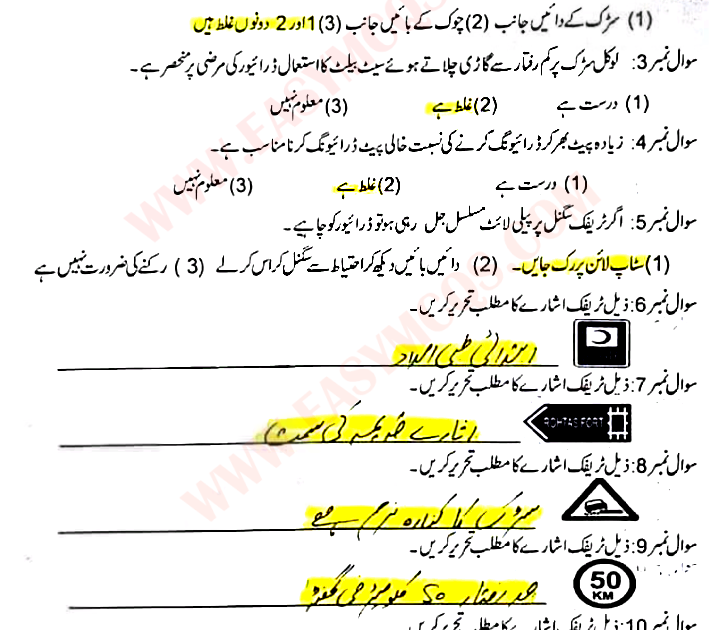 (1) سڑک کے دائیں جانب (2) چوک کے بائیں جانب (3) 1 اور 2 دونوں غلط ہیں
سوال نمبر 3: لوکل سڑک پر کم رفتار سے گاڑی چلاتے ہوئے سیٹ بیلٹ کا استعمال ڈرائیور کی مرضی پر منحصر ہے۔
(1) درست ہے (2) غلط ہے (3) معلوم نہیں
سوال نمبر 4: زیادہ پیٹ بھر کر ڈرائیونگ کرنے کی نسبت خالی پیٹ ڈرائیونگ کرنا مناسب ہے۔
(1) درست ہے (2) غلط ہے (3) معلوم نہیں
سوال نمبر 5: اگر ٹریفک سگنل پر پیلی لائٹ مسلسل جل رہی ہو تو ڈرائیور کو چاہیے۔
(1) سٹاپ لائن پر رک جایں۔ (2) دائیں بائیں دیکھ کر احتیاط سے سگنل کراس کرلے (3) رکنے کی ضرورت نہیں ہے
سوال نمبر 6: ذیل ٹریفک اشارے کا مطلب تحریر کریں۔
ابتدائی طبی امداد
سوال نمبر 7: ذیل ٹریفک اشارے کا مطلب تحریر کریں۔
ROHTAS FORT
اشارے کی سمت
سوال نمبر 8: ذیل ٹریفک اشارے کا مطلب تحریر کریں۔
سڑک کا کنارہ نرم ہے
سوال نمبر 9: ذیل ٹریفک اشارے کا مطلب تحریر کریں۔
50 KM
حد رفتار 50 کلومیٹر فی گھنٹہ
سوال نمبر 10: ذیل ٹریفک اشارے کا مطلب تحریر کریں۔
WWW.EASYMCQS.COM